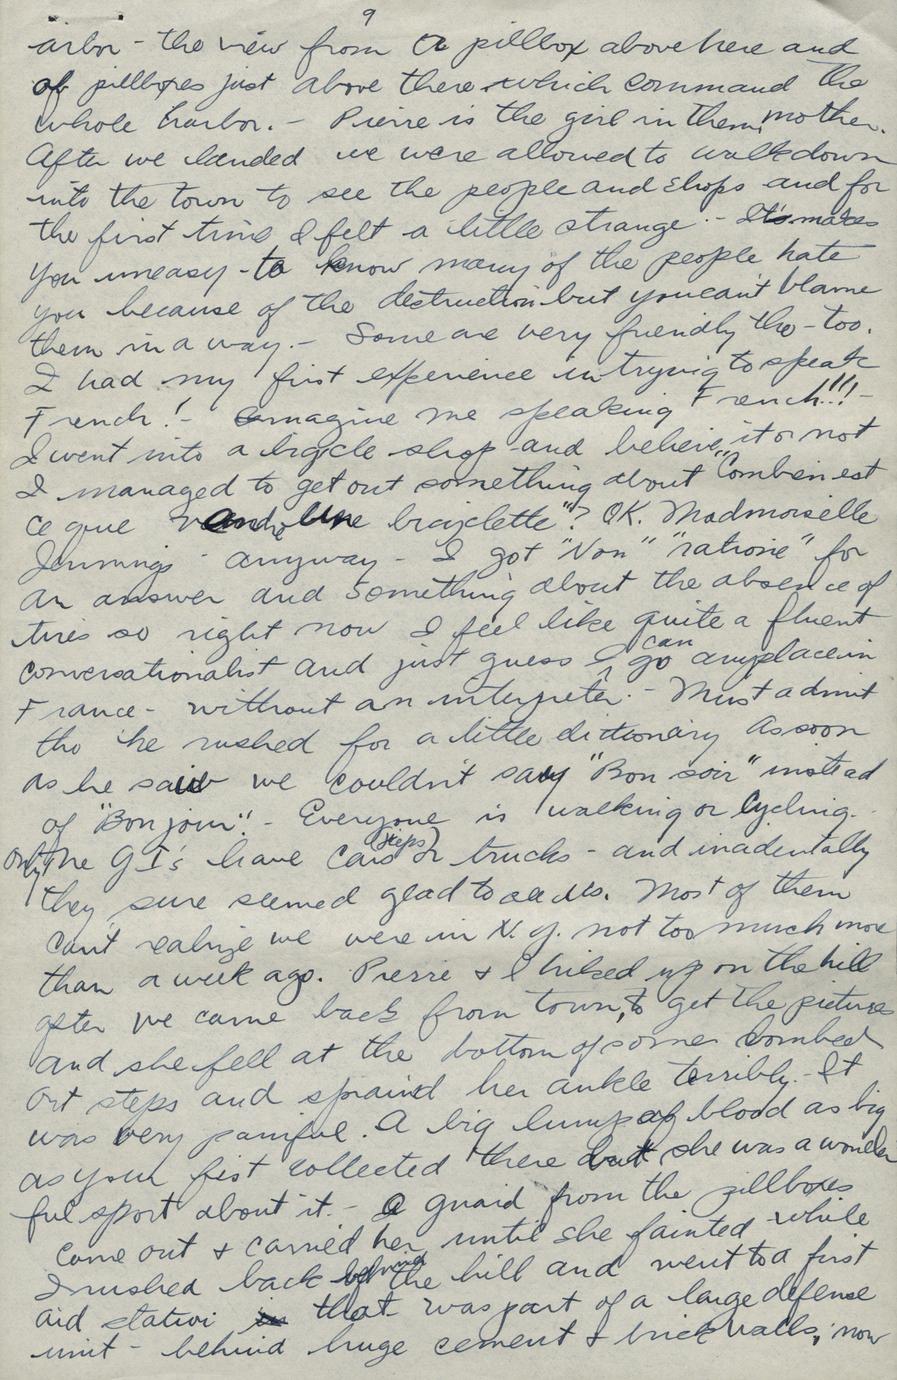 9
arbor - the view from a pillbox above here and
of pillboxes just above there which command the
whole harbor. - Pierre is the girl in them, mother.
After we landed we were allowed to walk down
into the town to see the people and shops and for
the first time I felt a little strange - It's makes
you uneasy - to know many of the people hate
you because of the destruction but you can't blame
them in a way. - Some are very friendly tho - too.
I had my first experience in trying to speak
French! - Imagine me speaking French!!! -
I went into a bicycle shop and believe it or not
I managed to get out something about "Combien est
ce que une bicyclette"? OK. Madmoiselle
Jennings - anyway - I got "Non" "ratione" for
an answer and something about the absence of
tires so right now I feel like quite a fluent
conversationalist and just guess I can go anyplace in
France - without an interpeter. - Must admit
tho he rushed for a little dictionary as soon
as he saw we couldn't say "Bon soir" instead
of "Bon jour". - Everyone is walking or cycling. -
Only the GI's have cars (jeeps) or trucks - and incidentally
they sure seemed glad to see us. Most of them
can't realize we were in N.Y. not too much more
than a week ago. Pierre & I hiked up on the hill
after we came back from town, to get the pictures
and she fell at the bottom of some bombed
out steps and spraind her ankle terribly. - It
was very painful. A big lump of blood as big
as your fist collected there but she was a wonder
ful sport about it. - A guard from the pillboxes
came out & carried her until she fainted while
I rushed back behind the hill and went to a first
aid station that was part of a large defense
unit - behind huge cement & brick walls, now